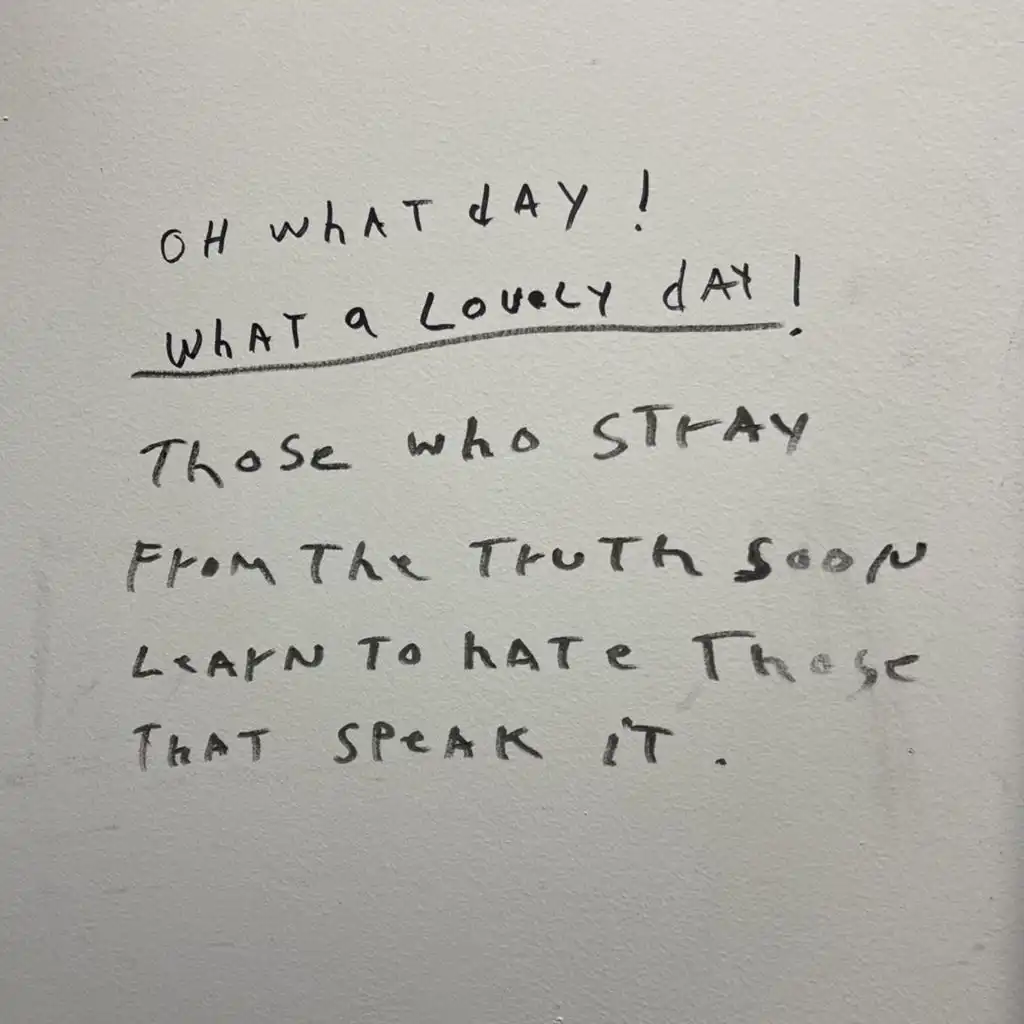 OH WhAT dAY !
WhAT a LoveLY dAY !
ThoSe who STrAY
From The TruTh Soon
LeArN To hATe Those
ThAT SPeAK iT .